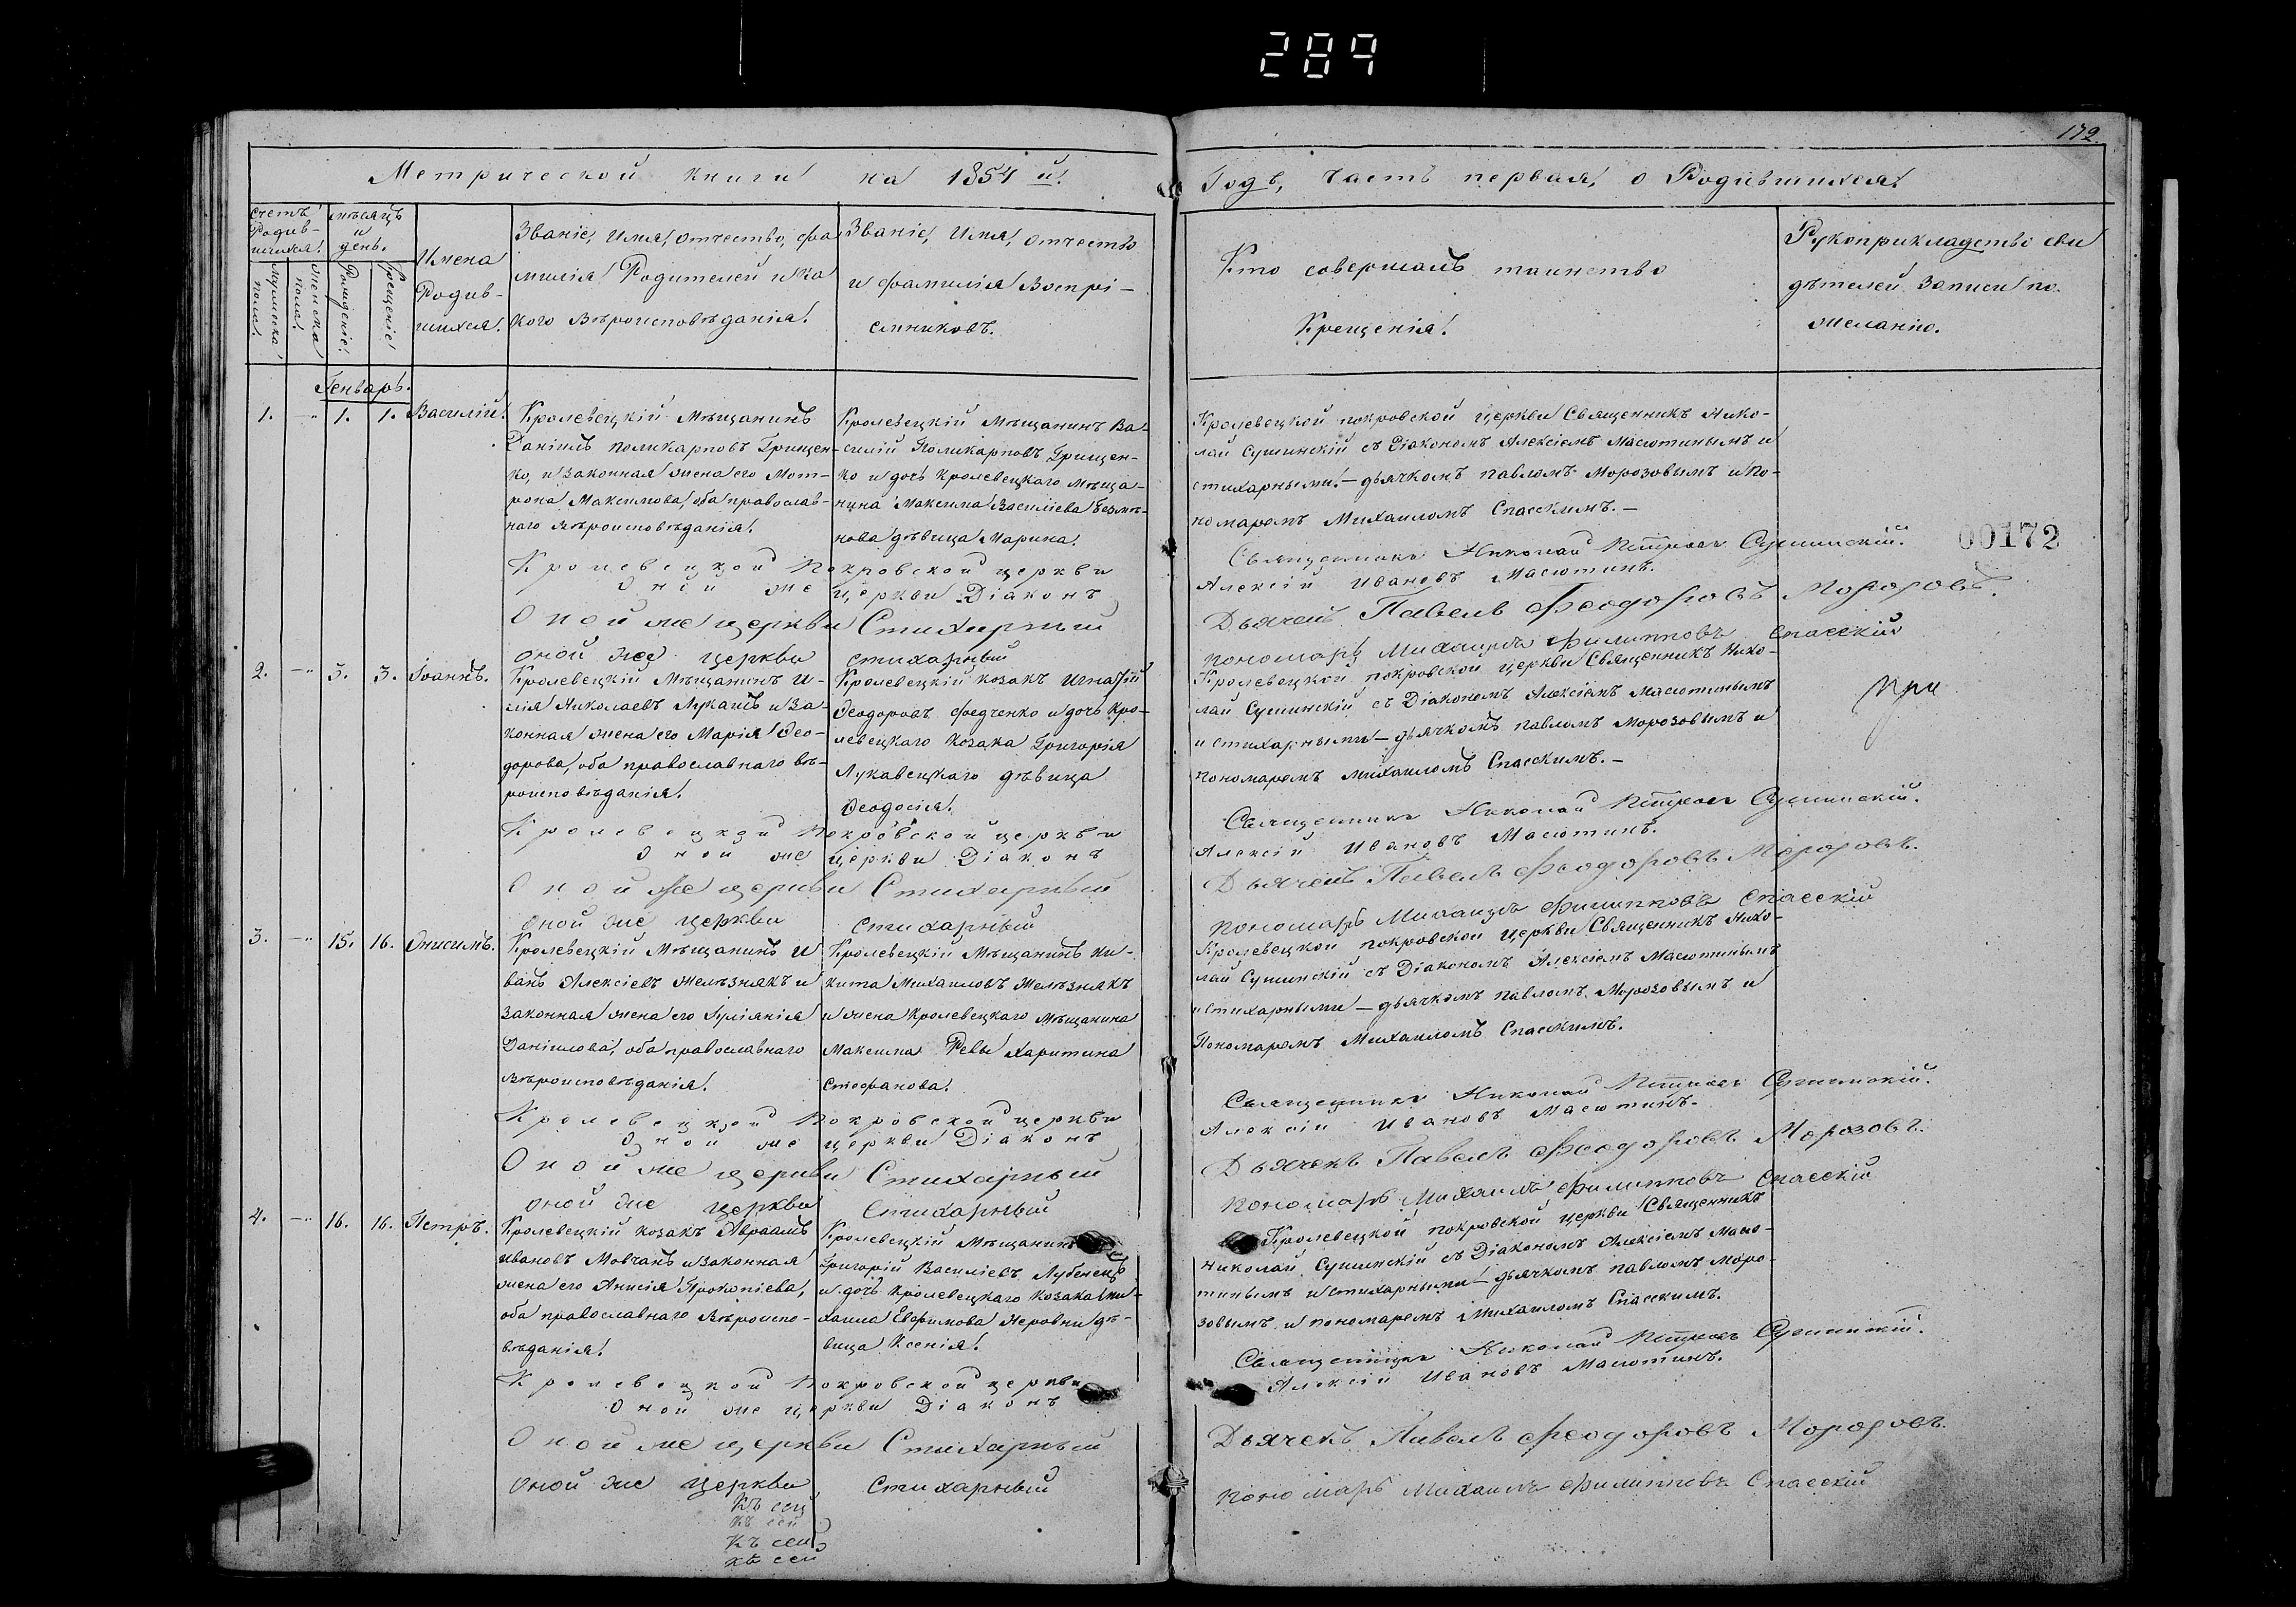 289
172
Метрической книги на 1854 й. Годъ, часть первая, о Родившихся.
счетъ Родив-
шихся.
мужеска пола.
женска пола.
мѣсяцъ и день.
Рожденіе.
Крещеніе
Имена Родив-
шихся.
Званіе, Имя, отчество, фа
милія Родителей и ка
кого вѣроисповѣданія.
Званіе, Имя, отчество
и фамилія Воспрі-
емниковъ.
Кто совершалъ таинство
Крещенія.
Рукоприкладство сви
дѣтелей Записи по
желанію.
Генварь.
1. -„ 1. 1. Василій.
Кролевецкій Мѣщанинъ
Даніилъ поликарповъ Грищен-
ко, и законная жена его Мот-
рона Максимова, оба православ-
наго вѣроисповѣданія.
Кролевецкій Мѣщанинъ Ва-
силій Поликарповъ Грищен-
ко и дочь Кролевецкаго Мѣща-
нина Максима Василіева
нова дѣвица Марина.
Кролевецкой покровской церкви Священникъ Нико-
лай Сушинскій съ Діакономъ Алексіемъ Масютинымъ и
стихарными:- дьячкомъ павломъ Морозовымъ и По-
номаремъ Михаиломъ Спасскимъ.-
00172
Кролевецкой Покровской церкви Священникъ Николай Петровъ Сушинскій.
Оной же церкви Діаконъ Алексій Ивановъ Масютинъ.
Оной же церкви Стихарный Дьячекъ Павелъ Феодоровъ Морозовъ.
оной же церкви стихарный пономарь Михаилъ Филипповъ Спасскій
2. -„ 3. 3. Іоаннъ.
Кролевецкій Мѣщанинъ И-
лія Николаевъ Лукашъ и за-
конная жена его Марія Ѳео-
дорова, оба православнаго вѣ-
роисповѣданія.
Кролевецкій козакъ Игнатій
Ѳеодоровъ Федченко и дочь Кро-
левецкаго Козака Григорія
Лукавецкаго дѣвица
Ѳеодосія.
Кролевецкой покровской церкви Священникъ Нико-
лай Сушинскій съ Діакономъ Алексіемъ Масютинымъ
и стихарными - дьячкомъ павломъ Морозовымъ и
пономаремъ Михаиломъ Спасскимъ.-
при
Кролевецкой Покровской церкви Священникъ Николай Петровъ Сушинскій.
Оной же церкви Діаконъ Алексій Ивановъ Масютинъ.
Оной же церкви Стихарный Дьячекъ Павелъ Феодоровъ Морозовъ.
оной же церкви стихарный пономарь Михаилъ Филипповъ Спасскій
3. -„ 15. 16. Онисимъ.
Кролевецкій Мѣщанинъ И
ванъ Алексіевъ Желѣзнякъ и
законная жена его Іуліанія
Даніилова, оба православнаго
вѣроисповѣданія.
Кролевецкій Мѣщанинъ Ни-
кита Михаиловъ Желѣзнякъ
и жена Кролевецкаго Мѣщанина
Максима Ревы Харитина
Стефанова.
Кролевецкой покровской церкви Священникъ Нико-
лай Сушинскій съ Діакономъ Алексіемъ Масютинымъ
и стихарными - дьячкомъ павломъ Морозовымъ и
Пономаремъ Михаиломъ Спасскимъ.
Кролевецкой Покровской церкви Священникъ Николай Петровъ Сушинскій.
Оной же церкви Діаконъ Алексій Ивановъ Масютинъ.
Оной же церкви Стихарный Дьячекъ Павелъ Феодоровъ Морозовъ.
оной же церкви Стихарный пономарь Михаилъ Филипповъ Спасскій
4. -„ 16. 16. Петръ.
Кролевецкій козакъ Авраамъ
Ивановъ Мовчанъ и законная
жена его Анисія Прокопіева,
оба православнаго вѣроиспо-
вѣданія.
Кролевецкій Мѣщанинъ
Григорій Василіевъ Лубенецъ
и дочь Кролевецкаго Козака Ми-
хаила Евфимова Неровни дѣ-
вица Ксенія.
Кролевецкой покровской церкви Священникъ
Николай Сушинскій съ Діакономъ Алексіемъ Масю-
тинымъ и стихарными - дьячкомъ павломъ Моро-
зовымъ и пономаремъ Михаиломъ Спасскимъ.
Кролевецкой Покровской церкви Священникъ Николай Петровъ Сушинскій.
Оной же церкви Діаконъ Алексій Ивановъ Масютинъ.
Оной же церкви Стихарный Дьячекъ Павелъ Феодоровъ Морозовъ.
оной же церкви стихарный пономарь Михаилъ Филипповъ Спасскій
Къ сей
Къ сей
Къ сей
Къ сей